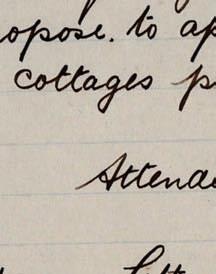 opose. to ap
cottages p
Attende